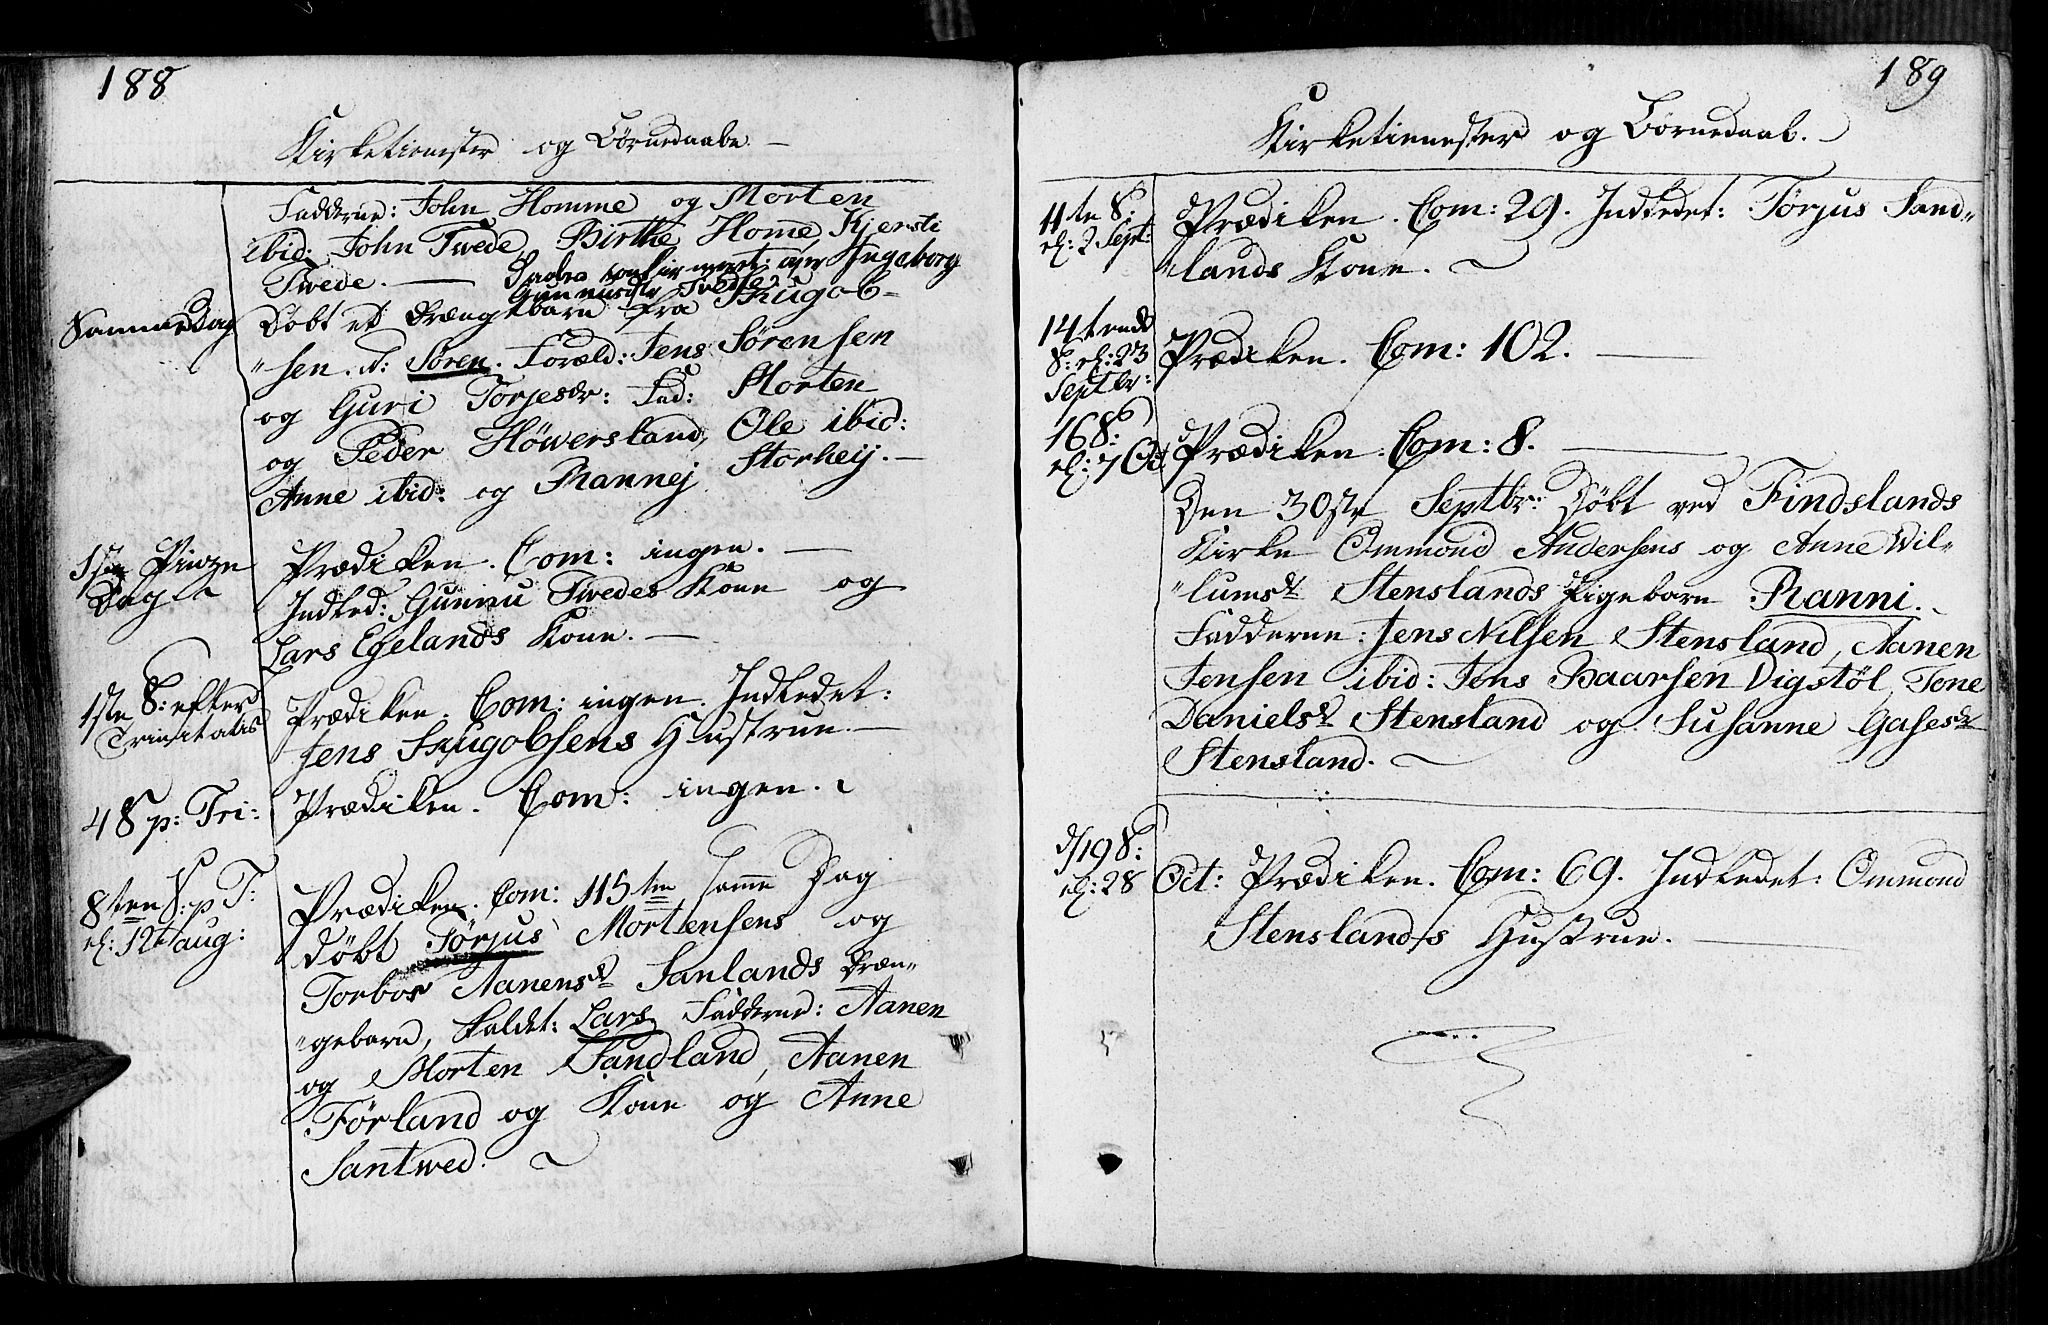 188
Kirketienester og Børnedaabe
Fadderne: John Homme og Morten
ibid: John Twede, Birthe Home Kjersti
Twede. — Samme Ingeborg
Gunnusdtr Twede
Samme Dag Døbt et Drængebarn fra Skugob-
"sen. n: Søren. Foræld: Jens Sørensen
og Guri Torjesdr: Fad: Morten
og Peder Höwersland, Ole ibid:
Anne ibid: og Rannej Storheij. —
1ste Pinze Prædiken. Com: ingen. —
Dag Indled: Gunnu Twedes Kone og
Lars Egelands Kone. —
1ste S: efter Prædiken. Com: ingen. Indledet:
Trinitatis Jens Skugobsens Hustrue. —
4 S p: Tri: Prædiken. Com: ingen.
8ten S: p T: Prædiken. Com: 115ten samme Dag
el: 12t aug: døbt Törjus Mortensens og
Torbor Aanensdr Sanlands Dræn"
"gebarn, kaldet: Lars. Fadderne: Aanen
og Morten Sandland, Aanen
Förland og Kone og Anne
Santwed.
189
Kirketienester og Børnedaab.
11te S: Prædiken. Com: 29. Indledet: Törjus Sand"
el: 2 Sept: "lands Kone.
14tende
S: el: 23 Prædiken. Com: 102. —
Septbr:
16 S: Prædiken. Com: 8. —
el: 7 Oct
Den 30te Septbr: Døbt ved Findslands
Kirke Ommond Andersens og Anne Wil"
"lumsdr Stenslands Pigebarn Ranni.
Fadderne: Jens Nilsen Stensland, Aanen
Jensen ibid: Jens Baarsen Vigstøl, Tone
Danielsdr Stensland og Susanne Gasesdr
Stensland.
d/19 S:
el: 28 Oct: Prædiken. Com: 69. Indledet: Ommond
Stenslands Hustrue. —